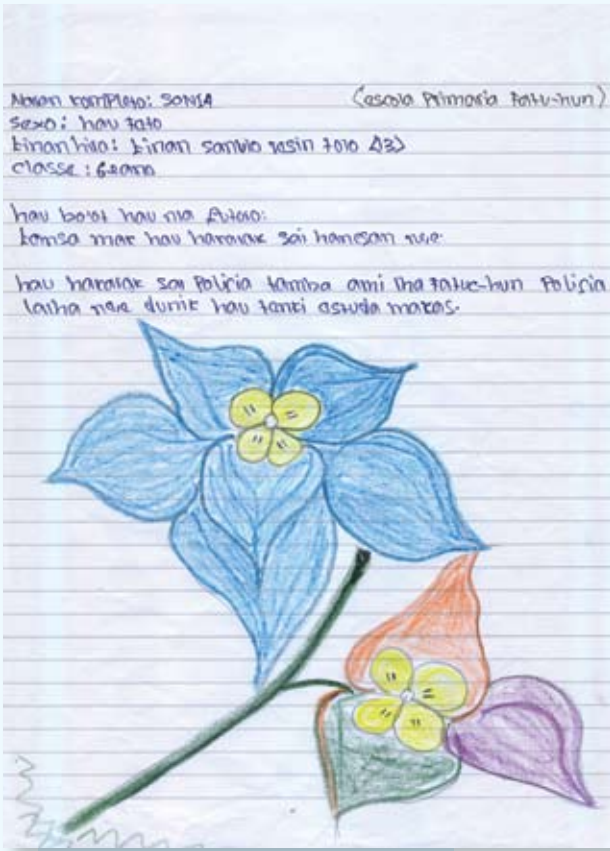 Naran kompleto: SONIA (escola Primaria Fatu-hun)
sexo: hau feto
tinan hira: tinan sanulo resin tolo (13)
classe: 6 ano
hau bo'ot hau nia futuro:
tamsa mak hau hakarak sai hanesan ne'e
hau hakarak sai Polisia tamba ami iha Fatuc-hun Polisia
laiha ne'e dunik hau tenki estuda makas.